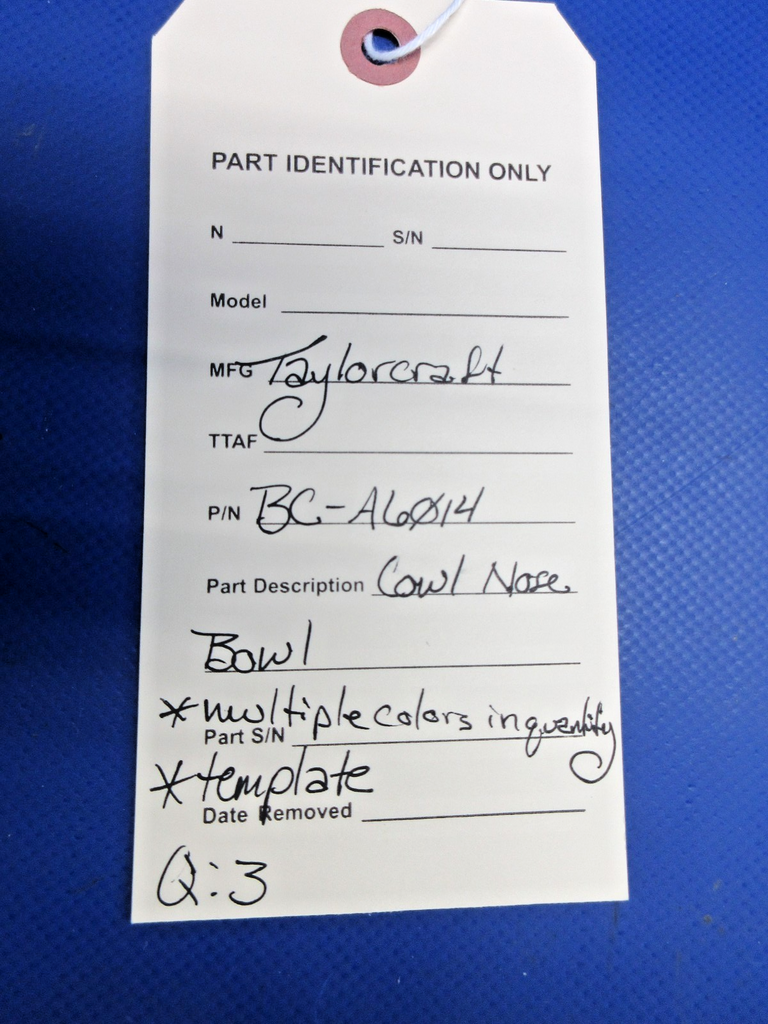 PART IDENTIFICATION ONLY
N S/N
Model
MFG Taylorcraft
TTAF
P/N BC-A6Ø14
Part Description Cowl Nose
Bowl
*multiple colors in quantity
Part S/N
*template
Date Removed
Q:3